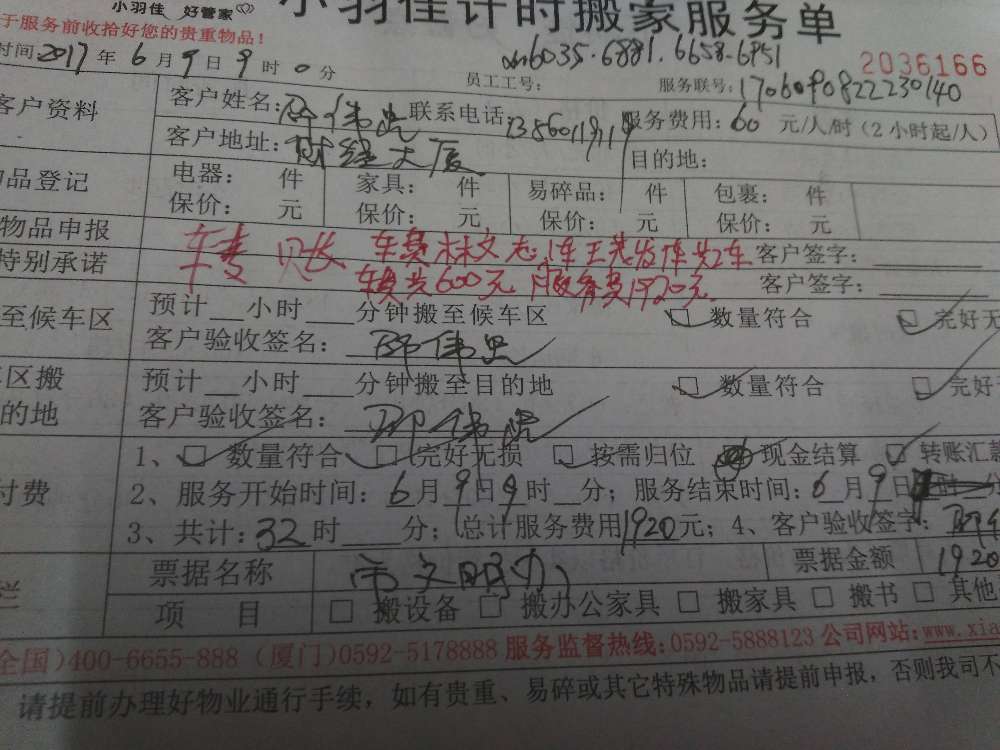 小羽佳 好管家
小羽佳计时搬家服务单
于服务前收拾好您的贵重物品！
6035.6881.6658.6951
时间2017年6月9日9时0分 员工工号： 2036166
服务联号：1706090822230140
客户资料 客户姓名： 联系电话： 服务费用：60元/人/时（2小时起/人）
客户地址：财经大厦 目的地：
物品登记 电器： 件 家具： 件 易碎品： 件 包裹： 件
保价： 元 保价： 元 保价： 元 保价： 元
物品申报 车费 林文志 客户签字：
特别承诺 车费共600元 服务费1920元 客户签字：
至候车区 预计__小时___分钟搬至候车区 数量符合 完好无
客户验收签名：
区搬 预计__小时___分钟搬至目的地 数量符合 完好
的地 客户验收签名：
1、 数量符合 完好无损 按需归位 现金结算 转账汇款
付费 2、服务开始时间：6月9日9时__分；服务结束时间：6月9日 时 分
3、共计：32时 分；总计服务费用1920元；4、客户验收签字：
票据名称 票据金额 1920
栏 项 目 □ 搬设备 □ 搬办公家具 □ 搬家具 □ 搬书 □ 其他
全国)400-6655-888 (厦门)0592-5178888 服务监督热线:0592-5888123 公司网站:www.xia
请提前办理好物业通行手续，如有贵重、易碎或其它特殊物品请提前申报，否则我司不